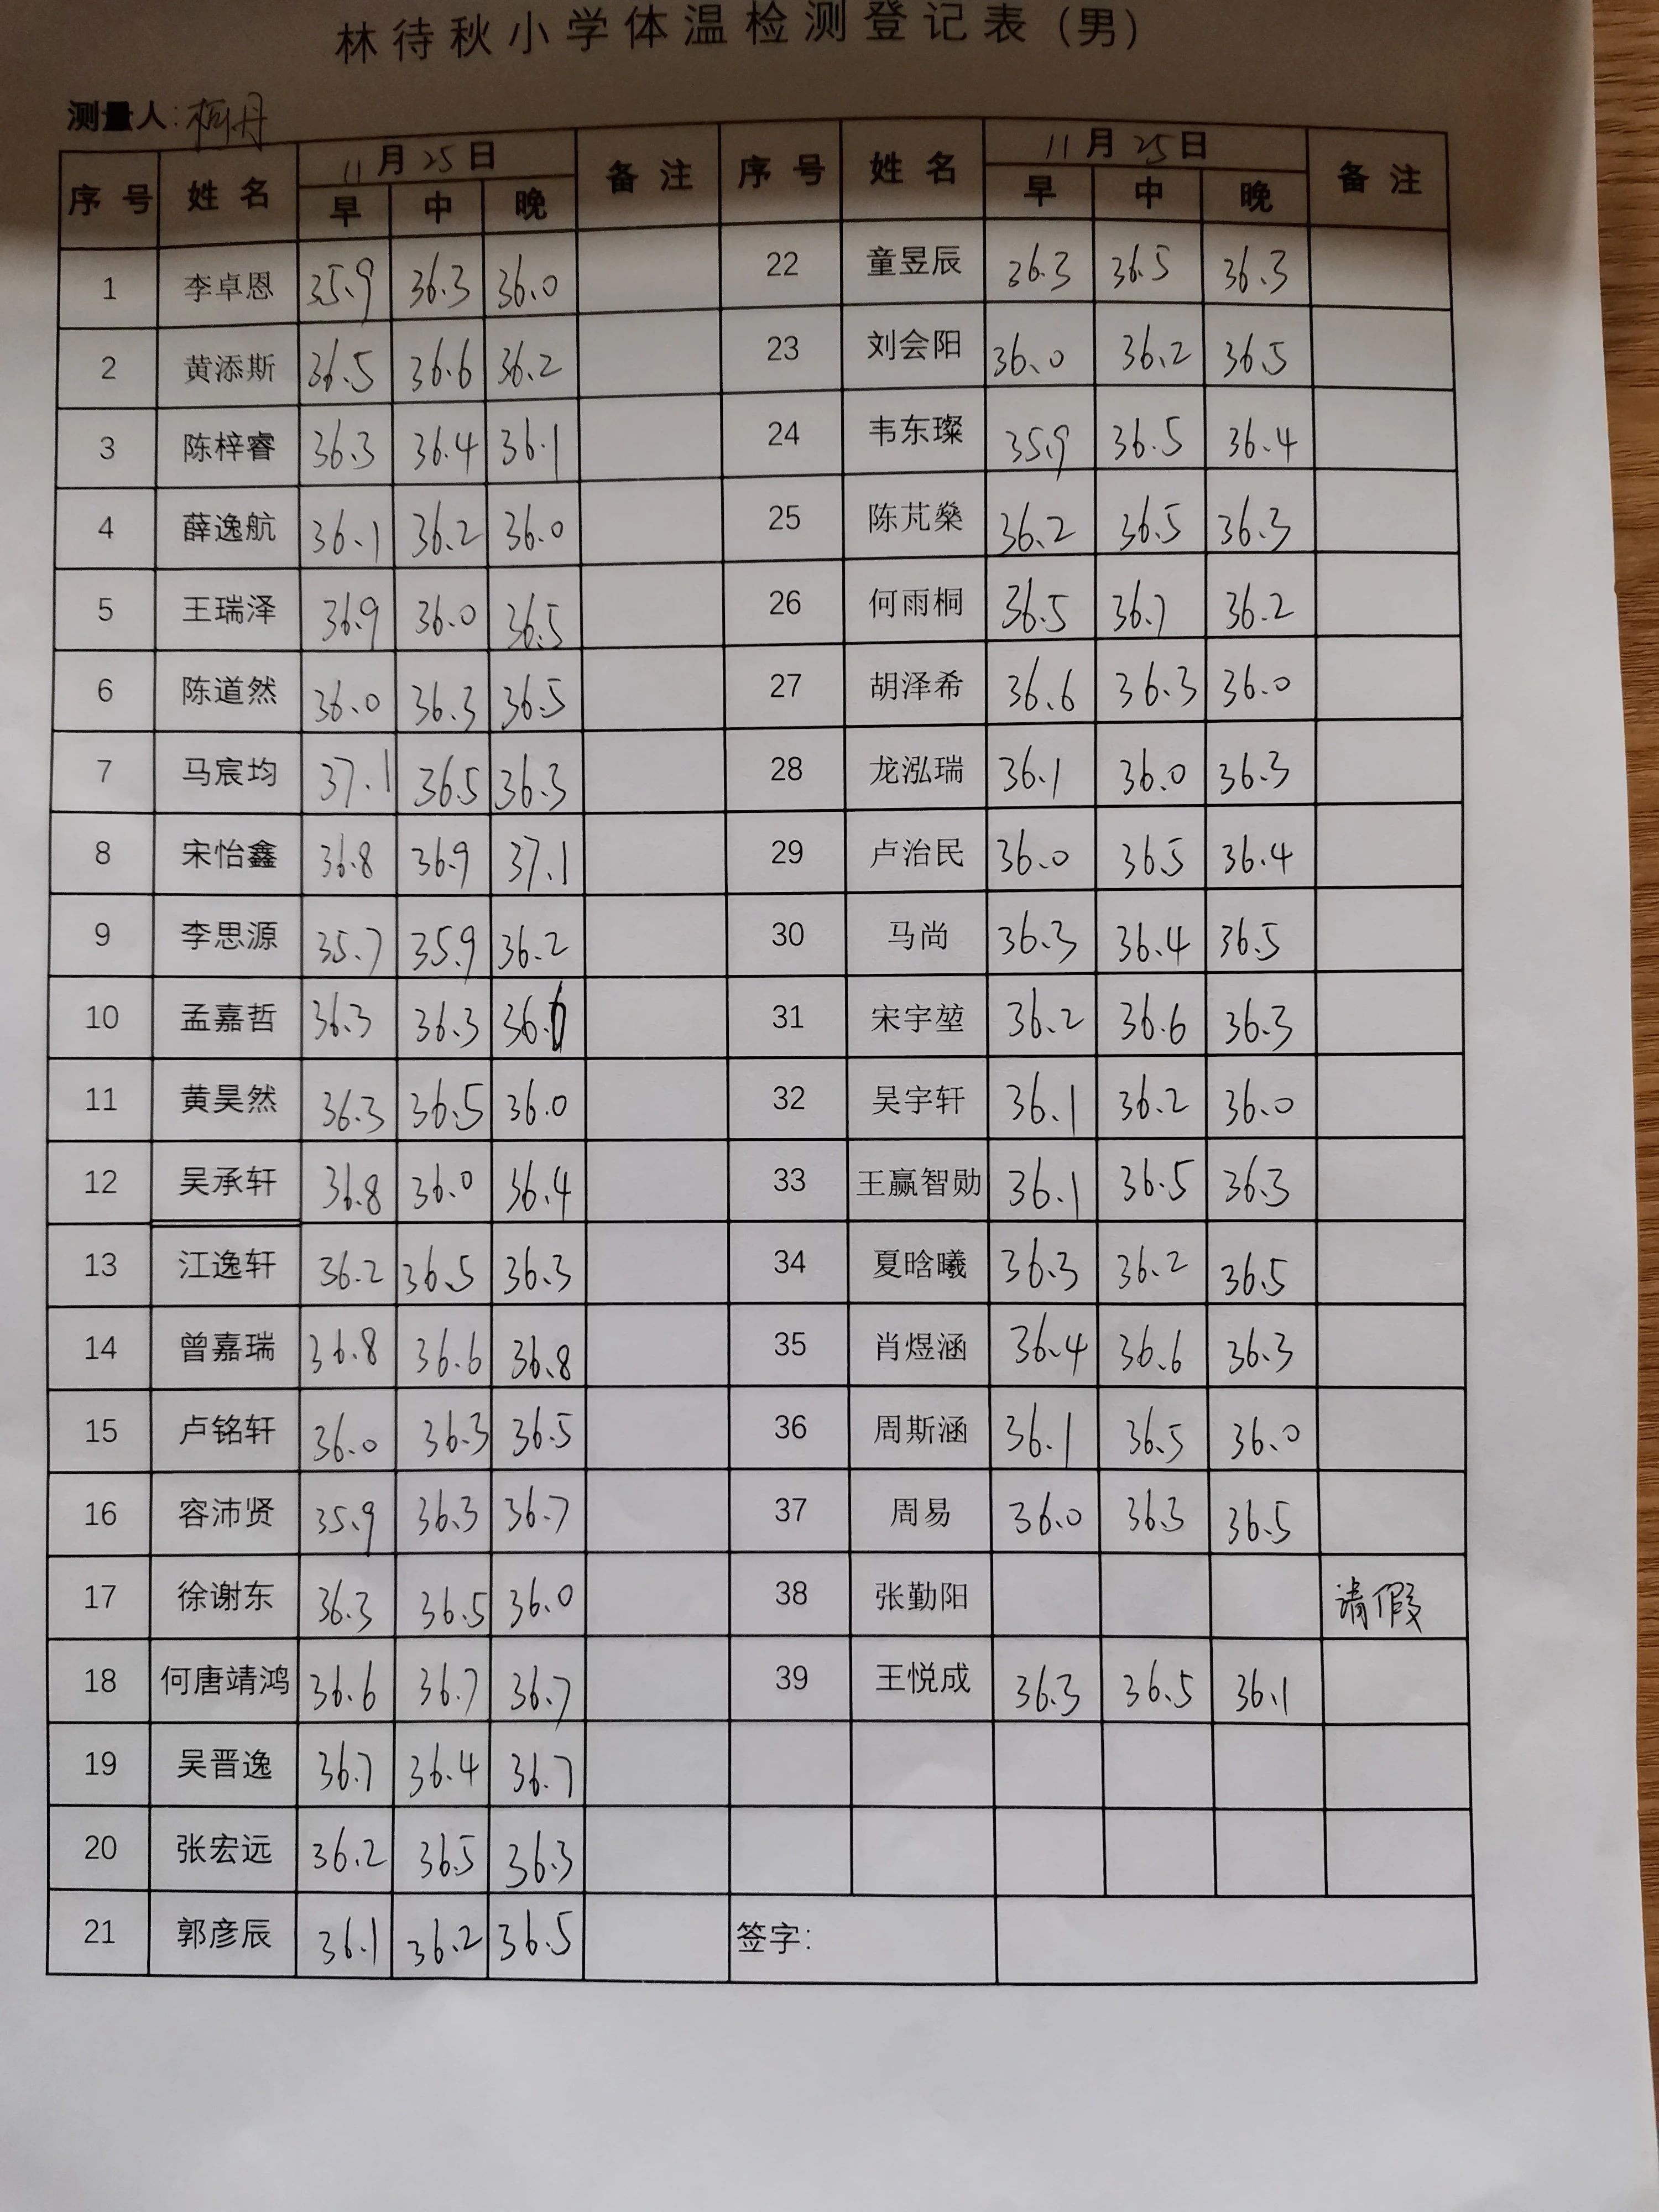 林待秋小学体温检测登记表(男)
测量人:柯丹
序号 姓名 11月25日 备注 序号 姓名 11月25日 备注
早 中 晚 早 中 晚
1 李卓恩 35.9 36.3 36.0 22 童昱辰 36.3 36.5 36.3
2 黄添斯 36.5 36.6 36.2 23 刘会阳 36.0 36.2 36.5
3 陈梓睿 36.3 36.4 36.1 24 韦东璨 35.9 36.5 36.4
4 薛逸航 36.1 36.2 36.0 25 陈芃燊 36.2 36.5 36.3
5 王瑞泽 36.9 36.0 36.5 26 何雨桐 36.5 36.7 36.2
6 陈道然 36.0 36.3 36.5 27 胡泽希 36.6 36.3 36.0
7 马宸均 37.1 36.5 36.3 28 龙泓瑞 36.1 36.0 36.3
8 宋怡鑫 36.8 36.9 37.1 29 卢治民 36.0 36.5 36.4
9 李思源 35.7 35.9 36.2 30 马尚 36.3 36.4 36.5
10 孟嘉哲 36.3 36.3 31 宋宇堃 36.2 36.6 36.3
11 黄昊然 36.3 36.5 36.0 32 吴宇轩 36.1 36.2 36.0
12 吴承轩 36.8 36.0 36.4 33 王赢智勋 36.1 36.5 36.3
13 江逸轩 36.2 36.5 36.3 34 夏晗曦 36.3 36.2 36.5
14 曾嘉瑞 36.8 36.6 36.8 35 肖煜涵 36.4 36.6 36.3
15 卢铭轩 36.0 36.3 36.5 36 周斯涵 36.1 36.5 36.0
16 容沛贤 35.9 36.3 36.7 37 周易 36.0 36.3 36.5
17 徐谢东 36.3 36.5 36.0 38 张勤阳 请假
18 何唐靖鸿 36.6 36.7 36.7 39 王悦成 36.3 36.5 36.1
19 吴晋逸 36.7 36.4 36.7
20 张宏远 36.2 36.5 36.3
21 郭彦辰 36.1 36.2 36.5 签字: